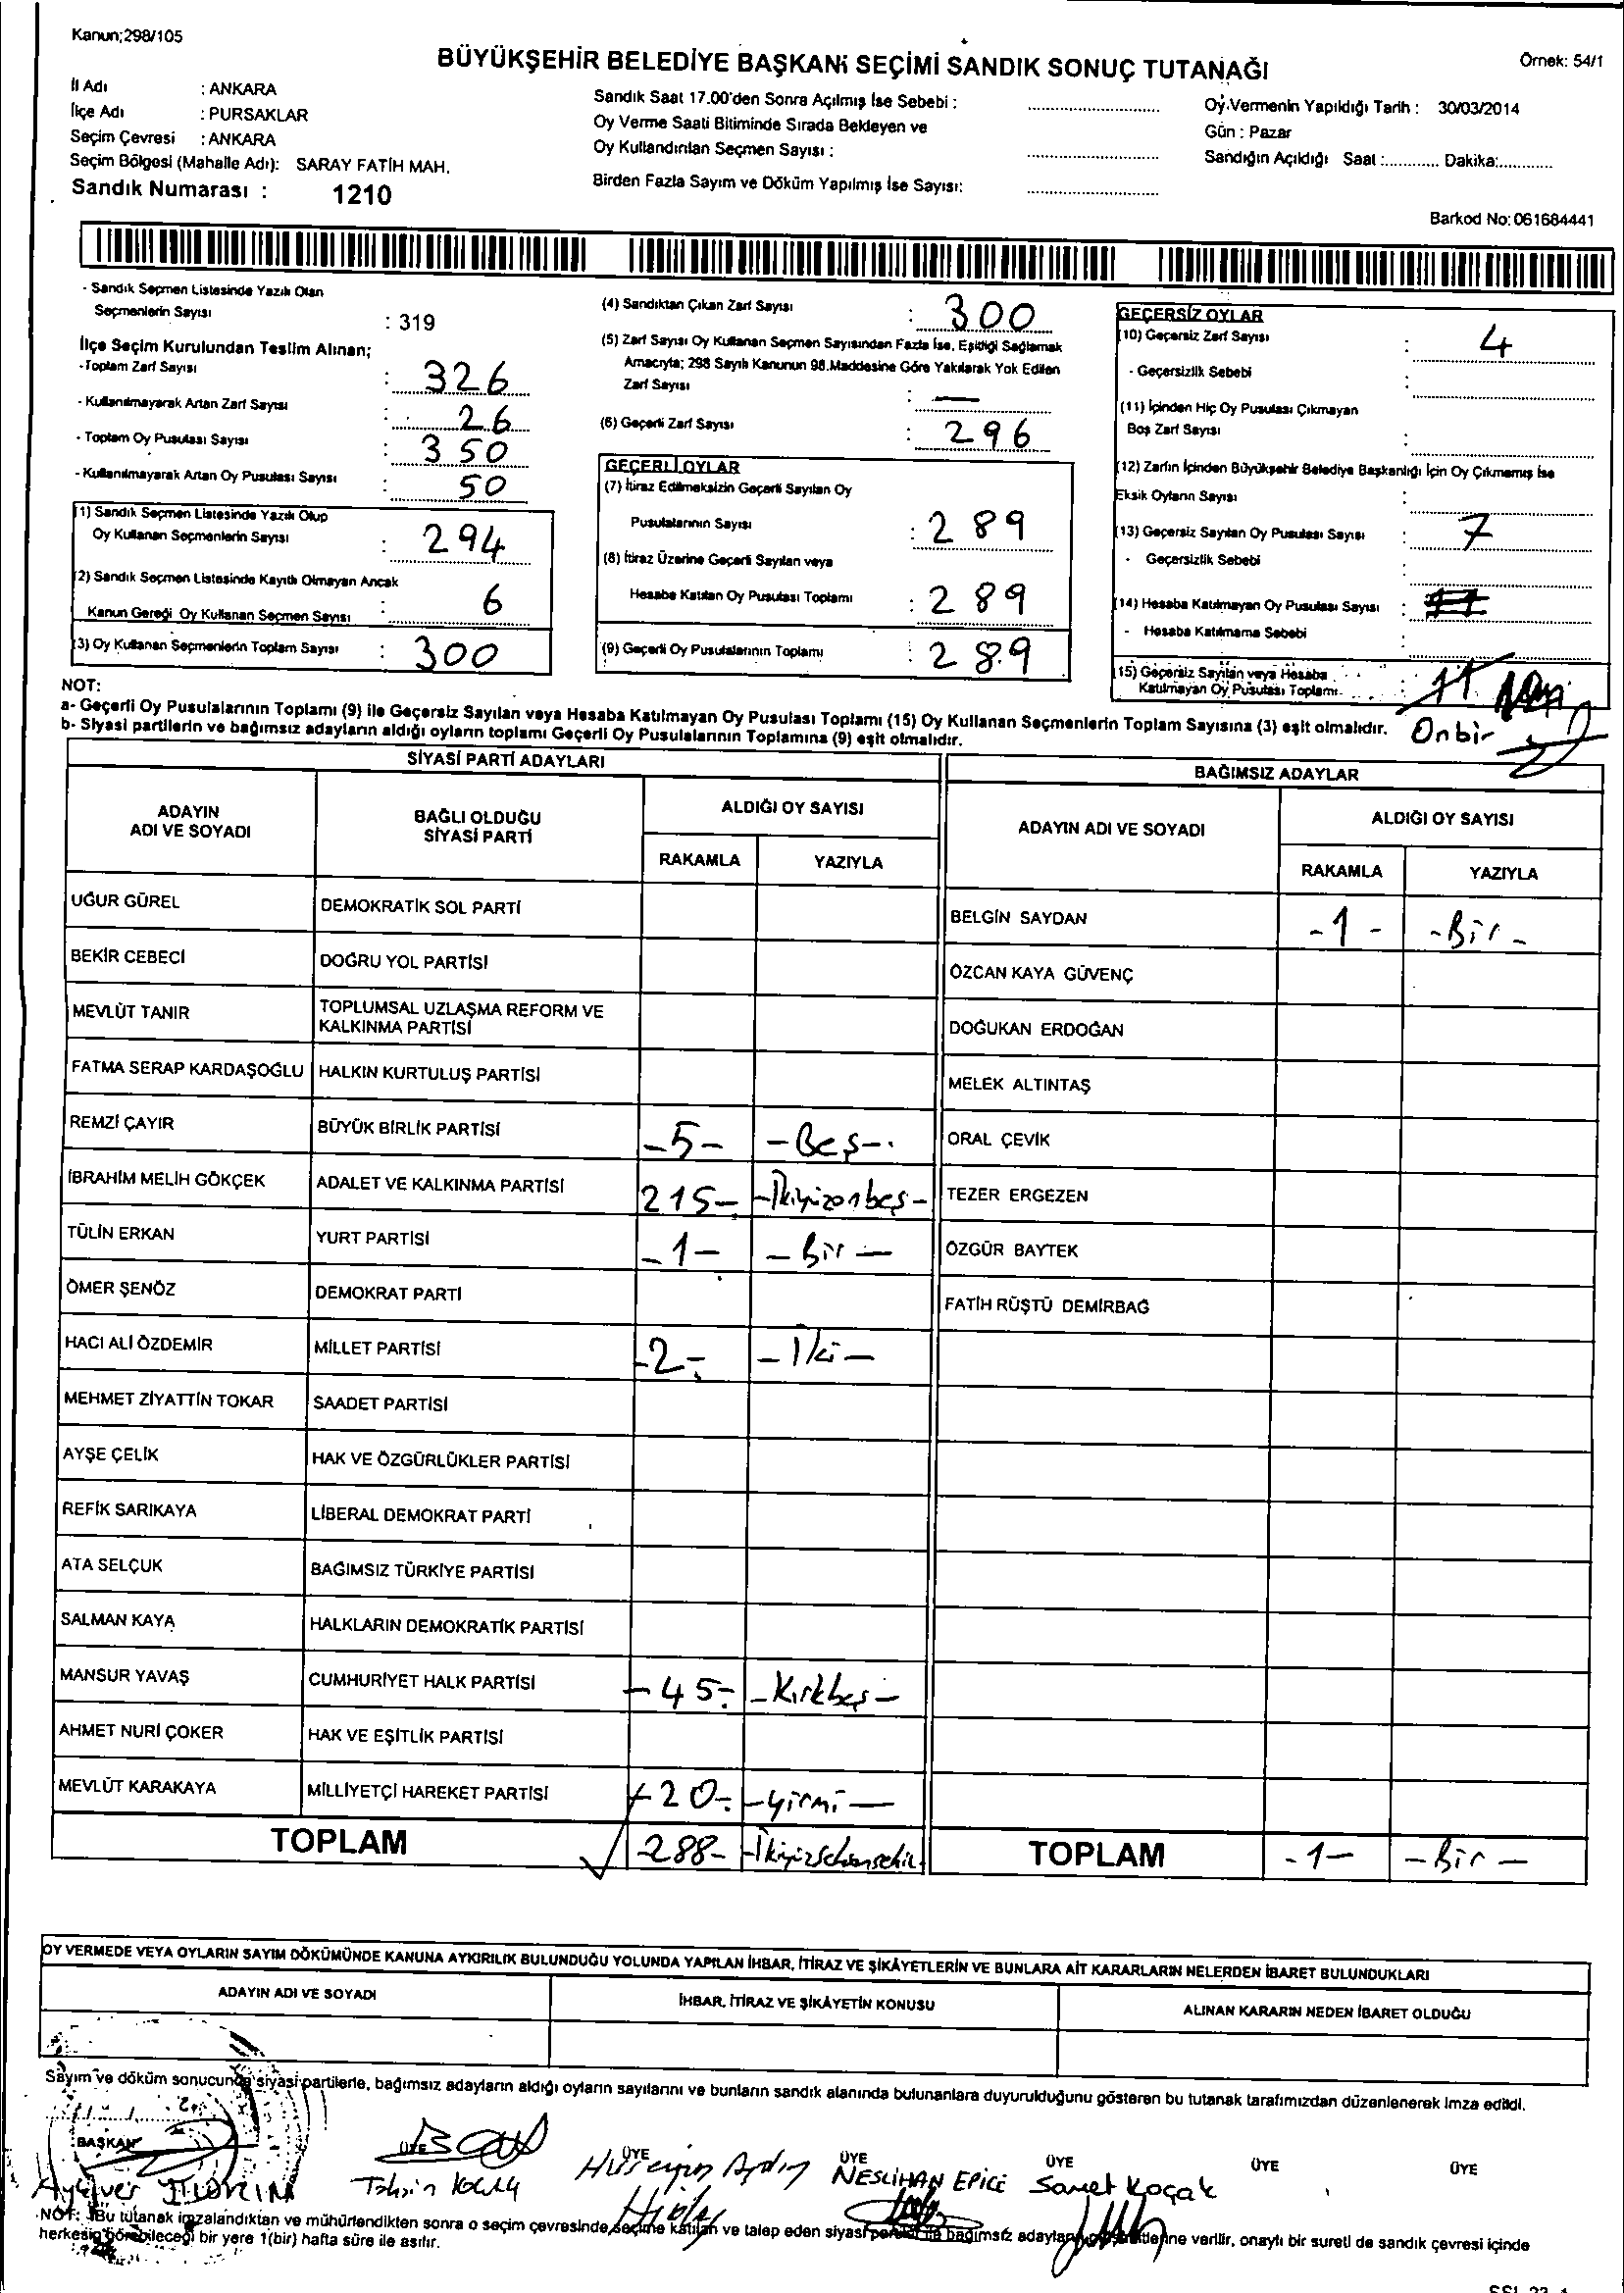 Kanun;298/105
BÜYÜKŞEHİR BELEDİYE BAŞKANI SEÇİMİ SANDIK SONUÇ TUTANAĞI
Örnek: 54/1
İl Adı : ANKARA
İlçe Adı : PURSAKLAR
Seçim Çevresi : ANKARA
Seçim Bölgesi (Mahalle Adı): SARAY FATİH MAH.
Sandık Numarası : 1210
Sandık Saat 17.00'den Sonra Açılmış İse Sebebi :
Oy Verme Saati Bitiminde Sırada Bekleyen ve
Oy Kullandırılan Seçmen Sayısı :
Birden Fazla Sayım ve Döküm Yapılmış İse Sayısı:
Oy Vermenin Yapıldığı Tarih : 30/03/2014
Gün : Pazar
Sandığın Açıldığı Saat :............ Dakika:............
Barkod No: 061684441
- Sandık Seçmen Listesinde Yazılı Olan
Seçmenlerin Sayısı : 319
İlçe Seçim Kurulundan Teslim Alınan;
-Toplam Zarf Sayısı : 326
- Kullanılmayarak Artan Zarf Sayısı : 26
- Toplam Oy Pusulası Sayısı : 350
- Kullanılmayarak Artan Oy Pusulası Sayısı : 50
(1) Sandık Seçmen Listesinde Yazılı Olup
Oy Kullanan Seçmenlerin Sayısı : 294
(2) Sandık Seçmen Listesinde Kayıtlı Olmayan Ancak
Kanun Gereği Oy Kullanan Seçmen Sayısı : 6
(3) Oy Kullanan Seçmenlerin Toplam Sayısı : 300
(4) Sandıktan Çıkan Zarf Sayısı : 300
(5) Zarf Sayısı Oy Kullanan Seçmen Sayısından Fazla İse, Eşitliği Sağlamak
Amacıyla; 298 Sayılı Kanunun 98.Maddesine Göre Yakılarak Yok Edilen
Zarf Sayısı : —
(6) Geçerli Zarf Sayısı : 296
GEÇERLİ OYLAR
(7) İtiraz Edilmeksizin Geçerli Sayılan Oy
Pusulalarının Sayısı : 289
(8) İtiraz Üzerine Geçerli Sayılan veya
Hesaba Katılan Oy Pusulası Toplamı : 289
(9) Geçerli Oy Pusulalarının Toplamı : 289
GEÇERSİZ OYLAR
(10) Geçersiz Zarf Sayısı : 4
- Geçersizlik Sebebi :
(11) İçinden Hiç Oy Pusulası Çıkmayan
Boş Zarf Sayısı :
(12) Zarfın İçinden Büyükşehir Belediye Başkanlığı İçin Oy Çıkmamış İse
Eksik Oyların Sayısı :
(13) Geçersiz Sayılan Oy Pusulası Sayısı : 7
- Geçersizlik Sebebi :
(14) Hesaba Katılmayan Oy Pusulası Sayısı :
- Hesaba Katılmama Sebebi :
(15) Geçersiz Sayılan veya Hesaba
Katılmayan Oy Pusulası Toplamı : 11
Onbir
NOT:
a- Geçerli Oy Pusulalarının Toplamı (9) ile Geçersiz Sayılan veya Hesaba Katılmayan Oy Pusulası Toplamı (15) Oy Kullanan Seçmenlerin Toplam Sayısına (3) eşit olmalıdır.
b- Siyasi partilerin ve bağımsız adayların aldığı oyların toplamı Geçerli Oy Pusulalarının Toplamına (9) eşit olmalıdır.
SİYASİ PARTİ ADAYLARI
ADAYIN ADI VE SOYADI BAĞLI OLDUĞU SİYASİ PARTİ ALDIĞI OY SAYISI
RAKAMLA YAZIYLA
UĞUR GÜREL DEMOKRATİK SOL PARTİ
BEKİR CEBECİ DOĞRU YOL PARTİSİ
MEVLÜT TANIR TOPLUMSAL UZLAŞMA REFORM VE
KALKINMA PARTİSİ
FATMA SERAP KARDAŞOĞLU HALKIN KURTULUŞ PARTİSİ
REMZİ ÇAYIR BÜYÜK BİRLİK PARTİSİ -5- -Beş-
İBRAHİM MELİH GÖKÇEK ADALET VE KALKINMA PARTİSİ 215- -İkiyüzonbeş-
TÜLİN ERKAN YURT PARTİSİ -1- -Bir-
ÖMER ŞENÖZ DEMOKRAT PARTİ
HACI ALİ ÖZDEMİR MİLLET PARTİSİ -2- -İki-
MEHMET ZİYATTİN TOKAR SAADET PARTİSİ
AYŞE ÇELİK HAK VE ÖZGÜRLÜKLER PARTİSİ
REFİK SARIKAYA LİBERAL DEMOKRAT PARTİ
ATA SELÇUK BAĞIMSIZ TÜRKİYE PARTİSİ
SALMAN KAYA HALKLARIN DEMOKRATİK PARTİSİ
MANSUR YAVAŞ CUMHURİYET HALK PARTİSİ -45- -Kırkbeş-
AHMET NURİ ÇOKER HAK VE EŞİTLİK PARTİSİ
MEVLÜT KARAKAYA MİLLİYETÇİ HAREKET PARTİSİ -20- -yirmi-
TOPLAM -288- -İkiyüzseksensekiz-
BAĞIMSIZ ADAYLAR
ADAYIN ADI VE SOYADI ALDIĞI OY SAYISI
RAKAMLA YAZIYLA
BELGİN SAYDAN -1- -Bir-
ÖZCAN KAYA GÜVENÇ
DOĞUKAN ERDOĞAN
MELEK ALTINTAŞ
ORAL ÇEVİK
TEZER ERGEZEN
ÖZGÜR BAYTEK
FATİH RÜŞTÜ DEMİRBAĞ
TOPLAM -1- -Bir-
OY VERMEDE VEYA OYLARIN SAYIM DÖKÜMÜNDE KANUNA AYKIRILIK BULUNDUĞU YOLUNDA YAPILAN İHBAR, İTİRAZ VE ŞİKÂYETLERİN VE BUNLARA AİT KARARLARIN NELERDEN İBARET BULUNDUKLARI
ADAYIN ADI VE SOYADI İHBAR, İTİRAZ VE ŞİKÂYETİN KONUSU ALINAN KARARIN NEDEN İBARET OLDUĞU
Sayım ve döküm sonucunda siyasi partilerle, bağımsız adayların aldığı oyların sayılarını ve bunların sandık alanında bulunanlara duyurulduğunu gösteren bu tutanak tarafımızdan düzenlenerek imza edildi.
BAŞKAN ÜYE ÜYE ÜYE ÜYE ÜYE ÜYE
Hüseyin Aydın NESLİHAN EPİCİ Samet Koçak
NOT: Bu tutanak imzalandıktan ve mühürlendikten sonra o seçim çevresinde, seçime katılan ve talep eden siyasi parti ile bağımsız adayların verilir, onaylı bir sureti de sandık çevresi içinde
herkesin görebileceği bir yere 1(bir) hafta süre ile asılır.